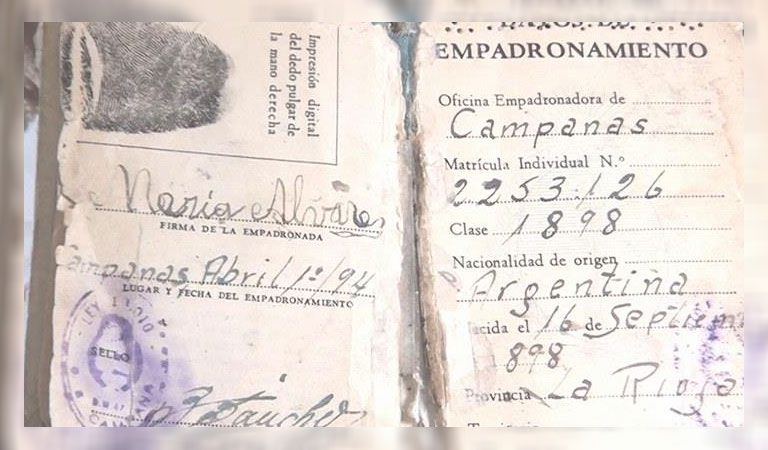 Impresión digital
del dedo pulgar de
la mano derecha
María Alvarez
FIRMA DE LA EMPADRONADA
Campanas Abril 1º/94
LUGAR Y FECHA DEL EMPADRONAMIENTO
LEY
SELLO
DATOS DE
EMPADRONAMIENTO
Oficina Empadronadora de
Campanas
Matrícula Individual N.º
2253.126
Clase 1898
Nacionalidad de origen
Argentina
cida el 16 de Septiem
898
Provincia La Rioja